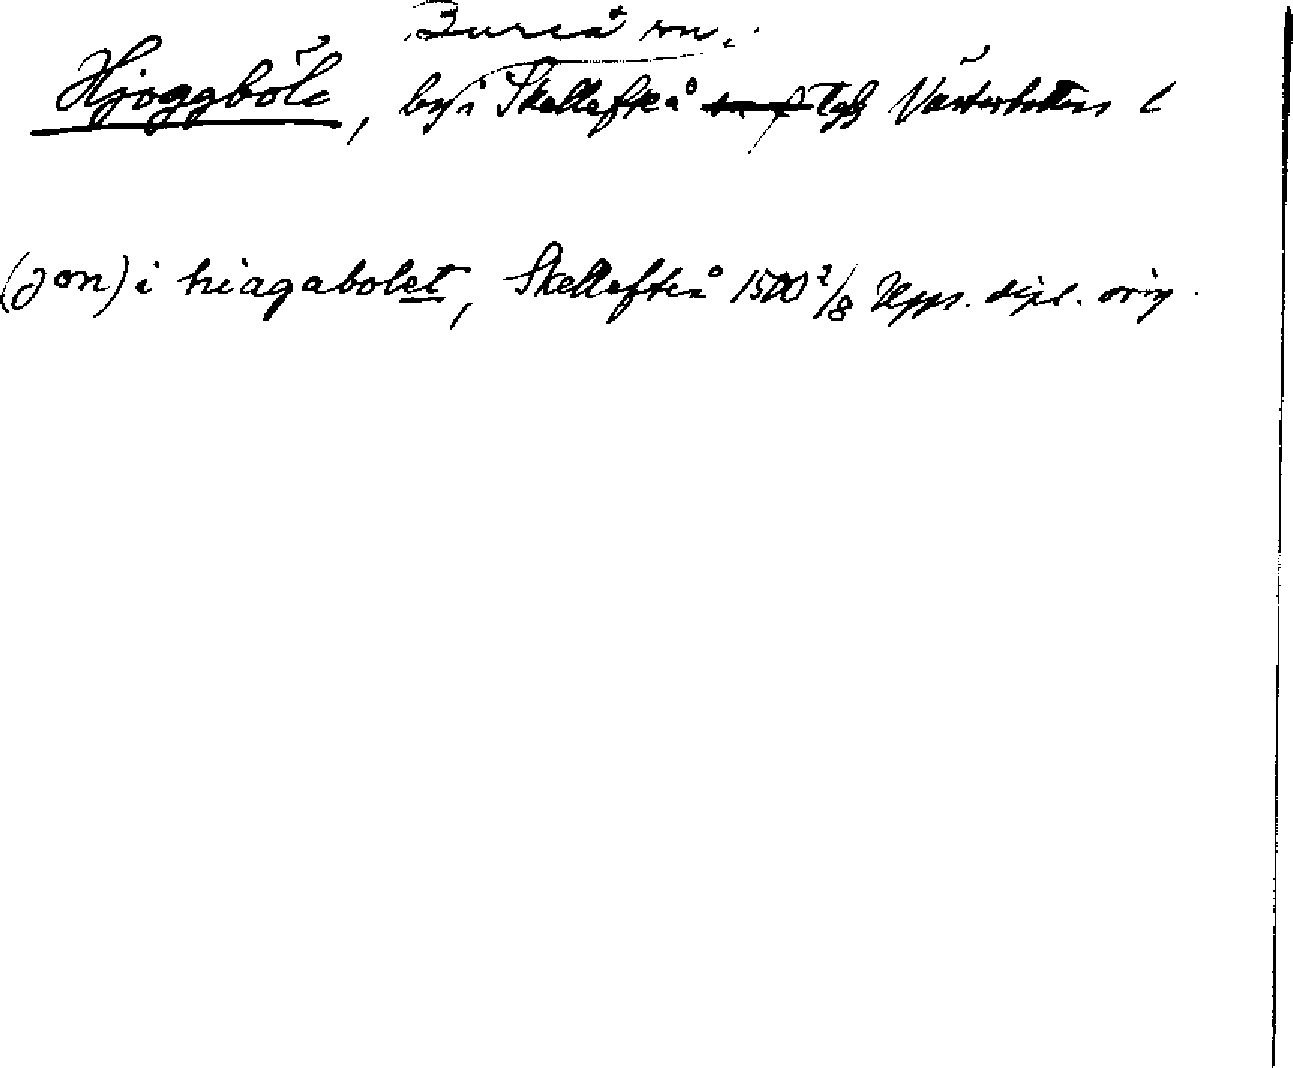 Bureå sn.
Hjoggböle, by i Skellefteå tg Västerbottens l
(jon) i hiagabolet, Skellefteå 1500 2/8 Upps. dipl. orig.